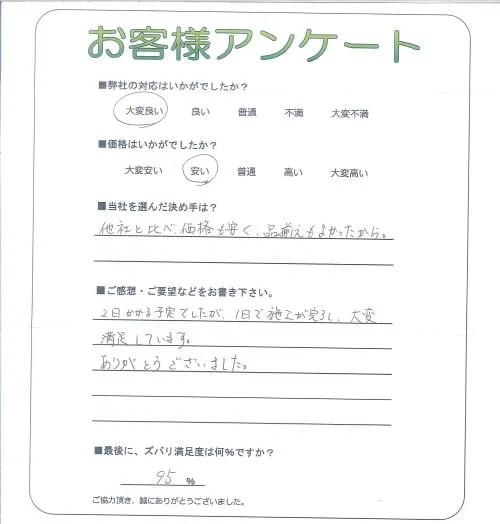 お客様アンケート
■弊社の対応はいかがでしたか？
大変良い 良い 普通 不満 大変不満
■価格はいかがでしたか？
大変安い 安い 普通 高い 大変高い
■当社を選んだ決め手は？
他社と比べ、価格も安く、品揃えもよかったから。
■ご感想・ご要望などをお書き下さい。
2日かかる予定でしたが、1日で施工が完了し、大変
満足しています。
ありがとうございました。
■最後に、ズバリ満足度は何％ですか？
95 ％
ご協力頂き、誠にありがとうございました。